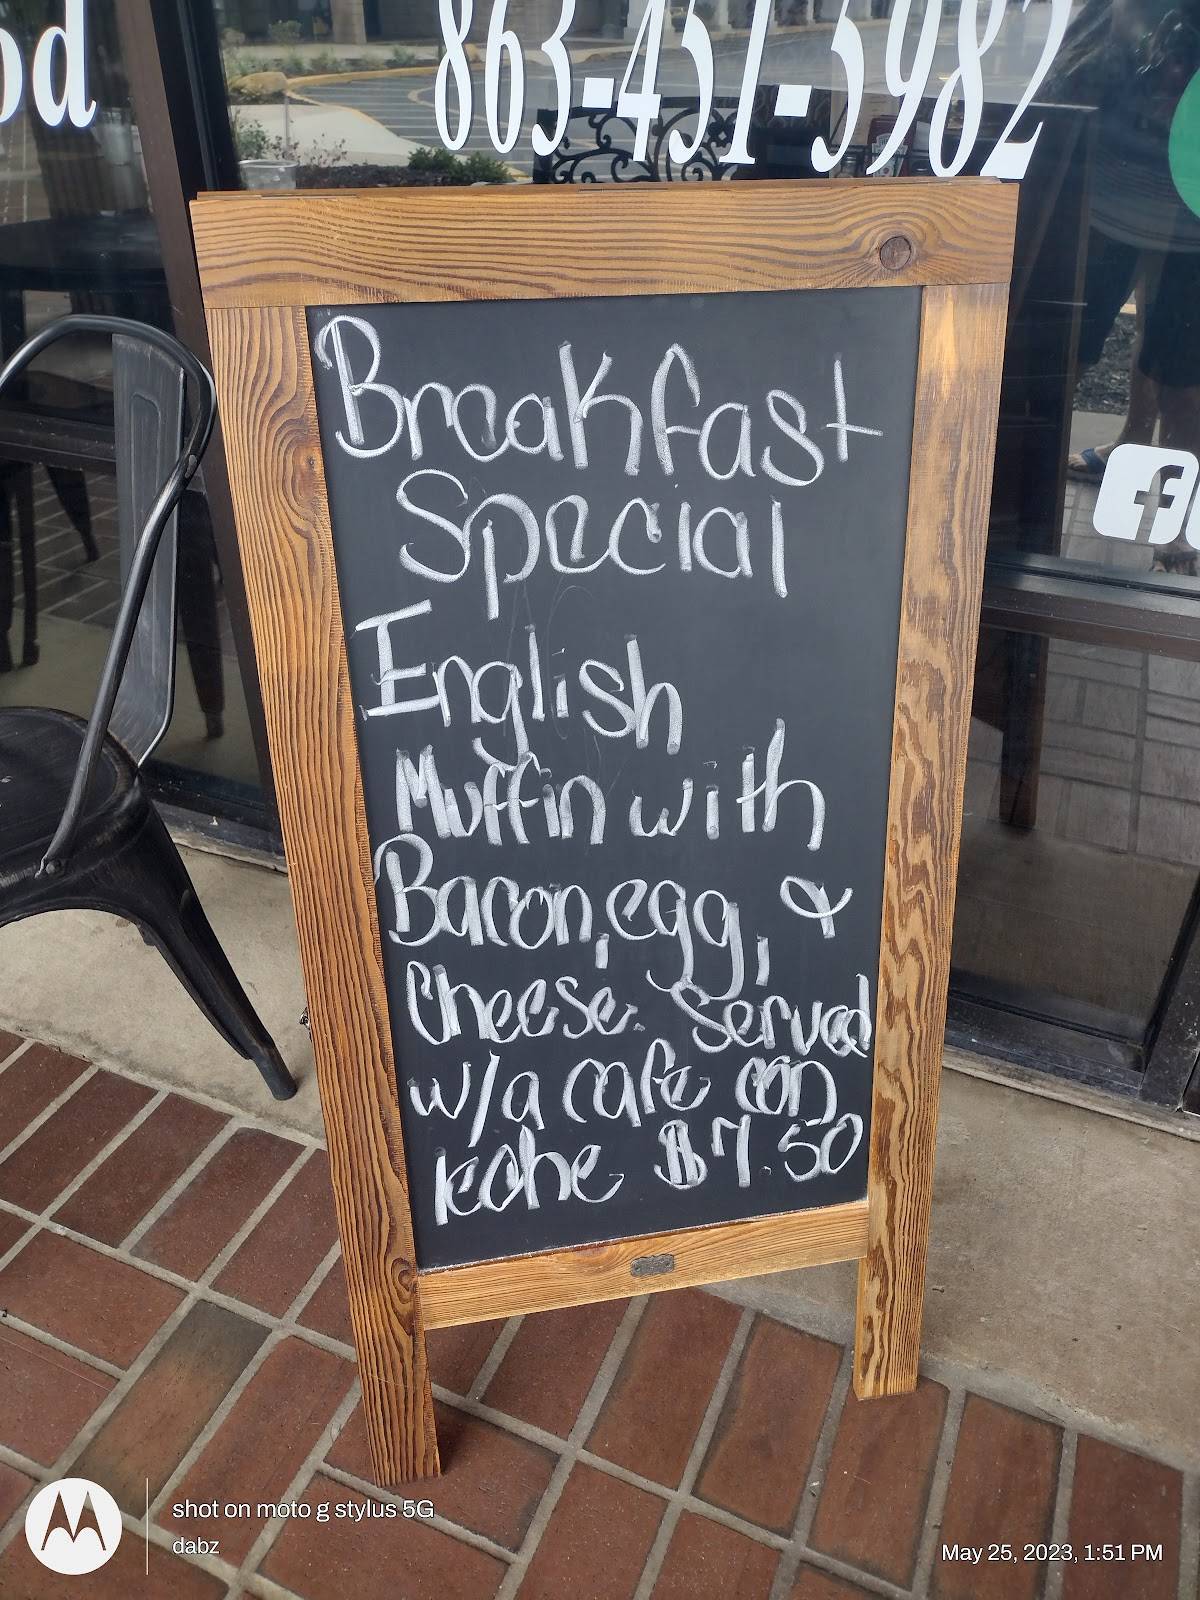 od
863-451-5982
Breakfast
Special
English
Muffin with
Bacon, egg, &
Cheese. Served
w/a cafe con
leche $7.50
f
shot on moto g stylus 5G
dabz
May 25, 2023, 1:51 PM